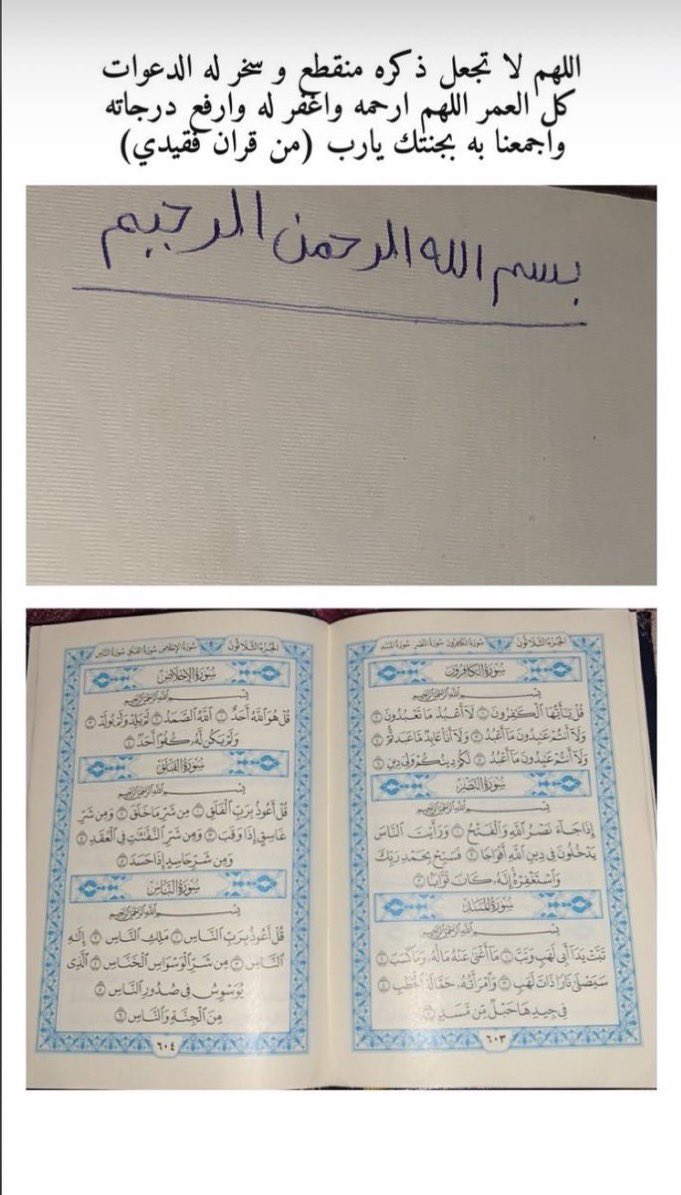 اللهم لا تجعل ذكره منقطع و سخر له الدعوات
كل العمر اللهم ارحمه واغفر له وارفع درجاته
واجمعنا به بجنتك يارب (من قران فقيدي)
بسم الله الرحمن الرحيم
الجزء الثلاثون سورة الكافرون سورة النصر سورة المسد
سورة الكافرون
بسم الله الرحمن الرحيم
قُلْ يَٰٓأَيُّهَا ٱلْكَٰفِرُونَ ١ لَآ أَعْبُدُ مَا تَعْبُدُونَ ٢
وَلَآ أَنتُمْ عَٰبِدُونَ مَآ أَعْبُدُ ٣ وَلَآ أَنَا۠ عَابِدٌ مَّا عَبَدتُّمْ ٤
وَلَآ أَنتُمْ عَٰبِدُونَ مَآ أَعْبُدُ ٥ لَكُمْ دِينُكُمْ وَلِىَ دِينِ ٦
سورة النصر
بسم الله الرحمن الرحيم
إِذَا جَآءَ نَصْرُ ٱللَّهِ وَٱلْفَتْحُ ١ وَرَأَيْتَ ٱلنَّاسَ
يَدْخُلُونَ فِى دِينِ ٱللَّهِ أَفْوَاجًا ٢ فَسَبِّحْ بِحَمْدِ رَبِّكَ
وَٱسْتَغْفِرْهُ إِنَّهُۥ كَانَ تَوَّابًۢا ٣
سورة المسد
بسم الله الرحمن الرحيم
تَبَّتْ يَدَآ أَبِى لَهَبٍ وَتَبَّ ١ مَآ أَغْنَىٰ عَنْهُ مَالُهُۥ وَمَا كَسَبَ ٢
سَيَصْلَىٰ نَارًا ذَاتَ لَهَبٍ ٣ وَٱمْرَأَتُهُۥ حَمَّالَةَ ٱلْحَطَبِ ٤
فِى جِيدِهَا حَبْلٌ مِّن مَّسَدٍۭ ٥
٦٠٣
الجزء الثلاثون سورة الإخلاص سورة الفلق سورة الناس
سورة الإخلاص
بسم الله الرحمن الرحيم
قُلْ هُوَ ٱللَّهُ أَحَدٌ ١ ٱللَّهُ ٱلصَّمَدُ ٢ لَمْ يَلِدْ وَلَمْ يُولَدْ ٣
وَلَمْ يَكُن لَّهُۥ كُفُوًا أَحَدٌۢ ٤
سورة الفلق
بسم الله الرحمن الرحيم
قُلْ أَعُوذُ بِرَبِّ ٱلْفَلَقِ ١ مِن شَرِّ مَا خَلَقَ ٢ وَمِن شَرِّ
غَاسِقٍ إِذَا وَقَبَ ٣ وَمِن شَرِّ ٱلنَّفَّٰثَٰتِ فِى ٱلْعُقَدِ ٤
وَمِن شَرِّ حَاسِدٍ إِذَا حَسَدَ ٥
سورة الناس
بسم الله الرحمن الرحيم
قُلْ أَعُوذُ بِرَبِّ ٱلنَّاسِ ١ مَلِكِ ٱلنَّاسِ ٢ إِلَٰهِ
ٱلنَّاسِ ٣ مِن شَرِّ ٱلْوَسْوَاسِ ٱلْخَنَّاسِ ٤ ٱلَّذِى
يُوَسْوِسُ فِى صُدُورِ ٱلنَّاسِ ٥
مِنَ ٱلْجِنَّةِ وَٱلنَّاسِ ٦
٦٠٤